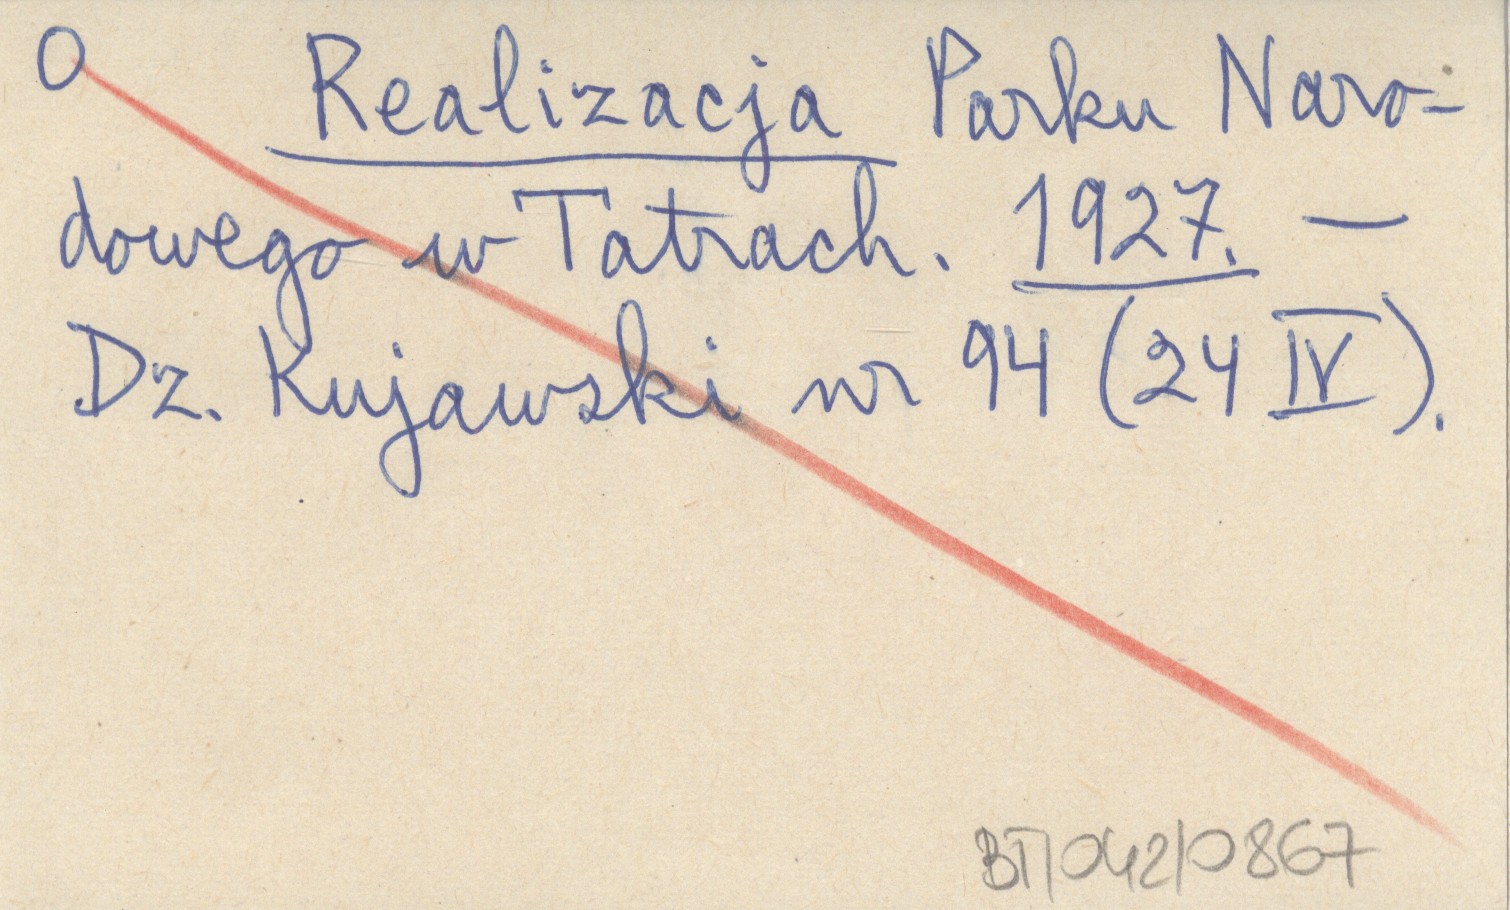 O Realizacja Parku Naro-
dowego w Tatrach. 1927. —
Dz. Kujawski nr 94 (24 IV).
BT/042/0867